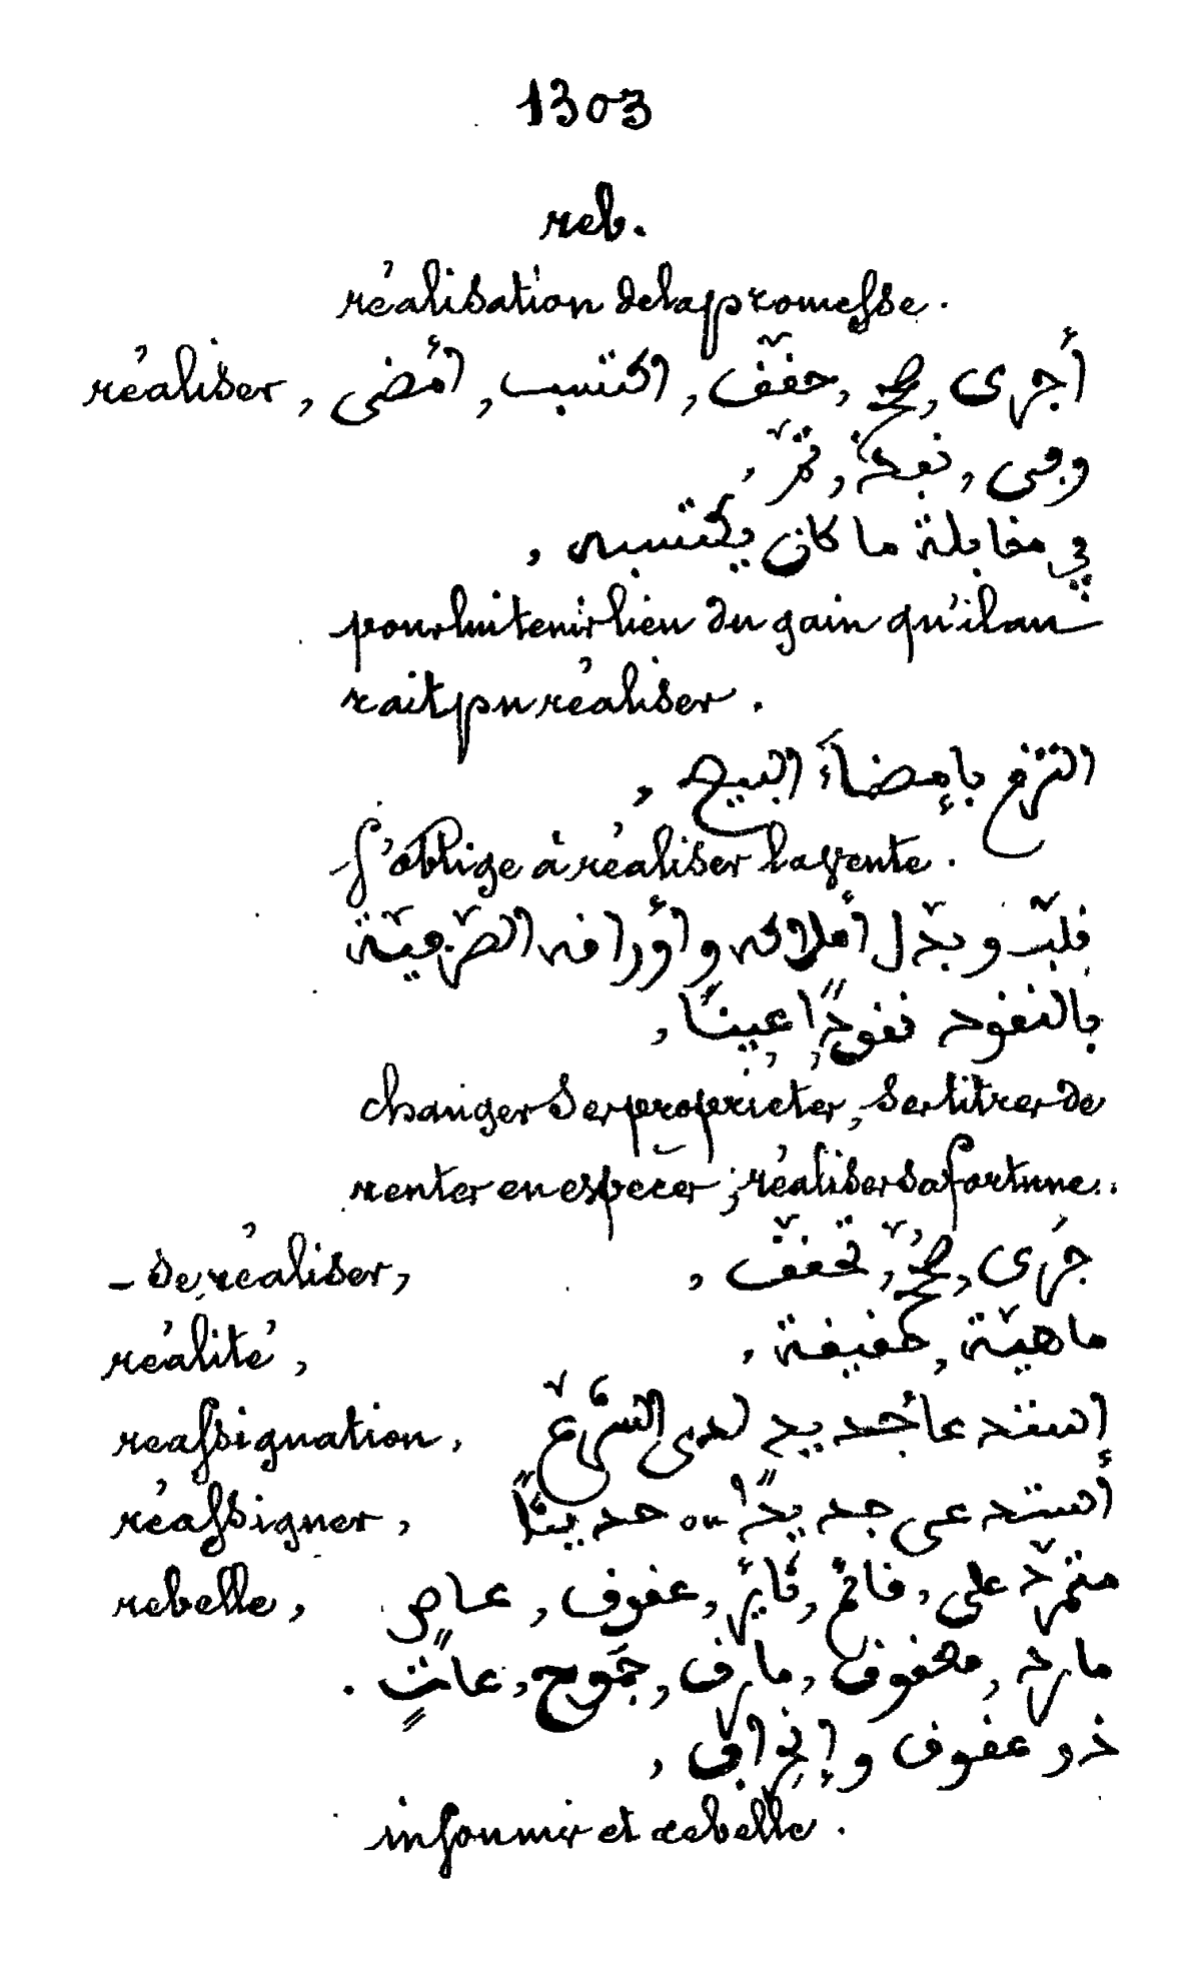 1303
reb.
réalisation de la promesse.
réaliser, أجرى, صحّ, حقّق, اكتسب, أمضى,
وفى, نفذ, تمّ,
في مقابلة ما كان يكتسبه,
pour lui tenir lieu du gain qu'il au
rait pu réaliser.
التزم بإمضاء البيع,
s'oblige à réaliser la vente.
قلّب وبدّل أملاكه وأوراقه الصّرفيّة
بالنقود نقودًا عينًا,
changer ses propriétés, ses titres de
rentes en espèces; réaliser sa fortune.
– se réaliser, جرى, صحّ, تحقّق,
réalité, ماهيّة, حقيقة,
reassignation, إستدعا جديد لدى الشّرع
réassigner, أستدعى جديدًا ou حديثًا
rebelle, متمرّد على, قائم, ثائر, عقوق, عاص
مارد, معقوق, مارق, جموح, عاتٍ.
ذو عقوق وإنحراف,
insoumis et rebelle.